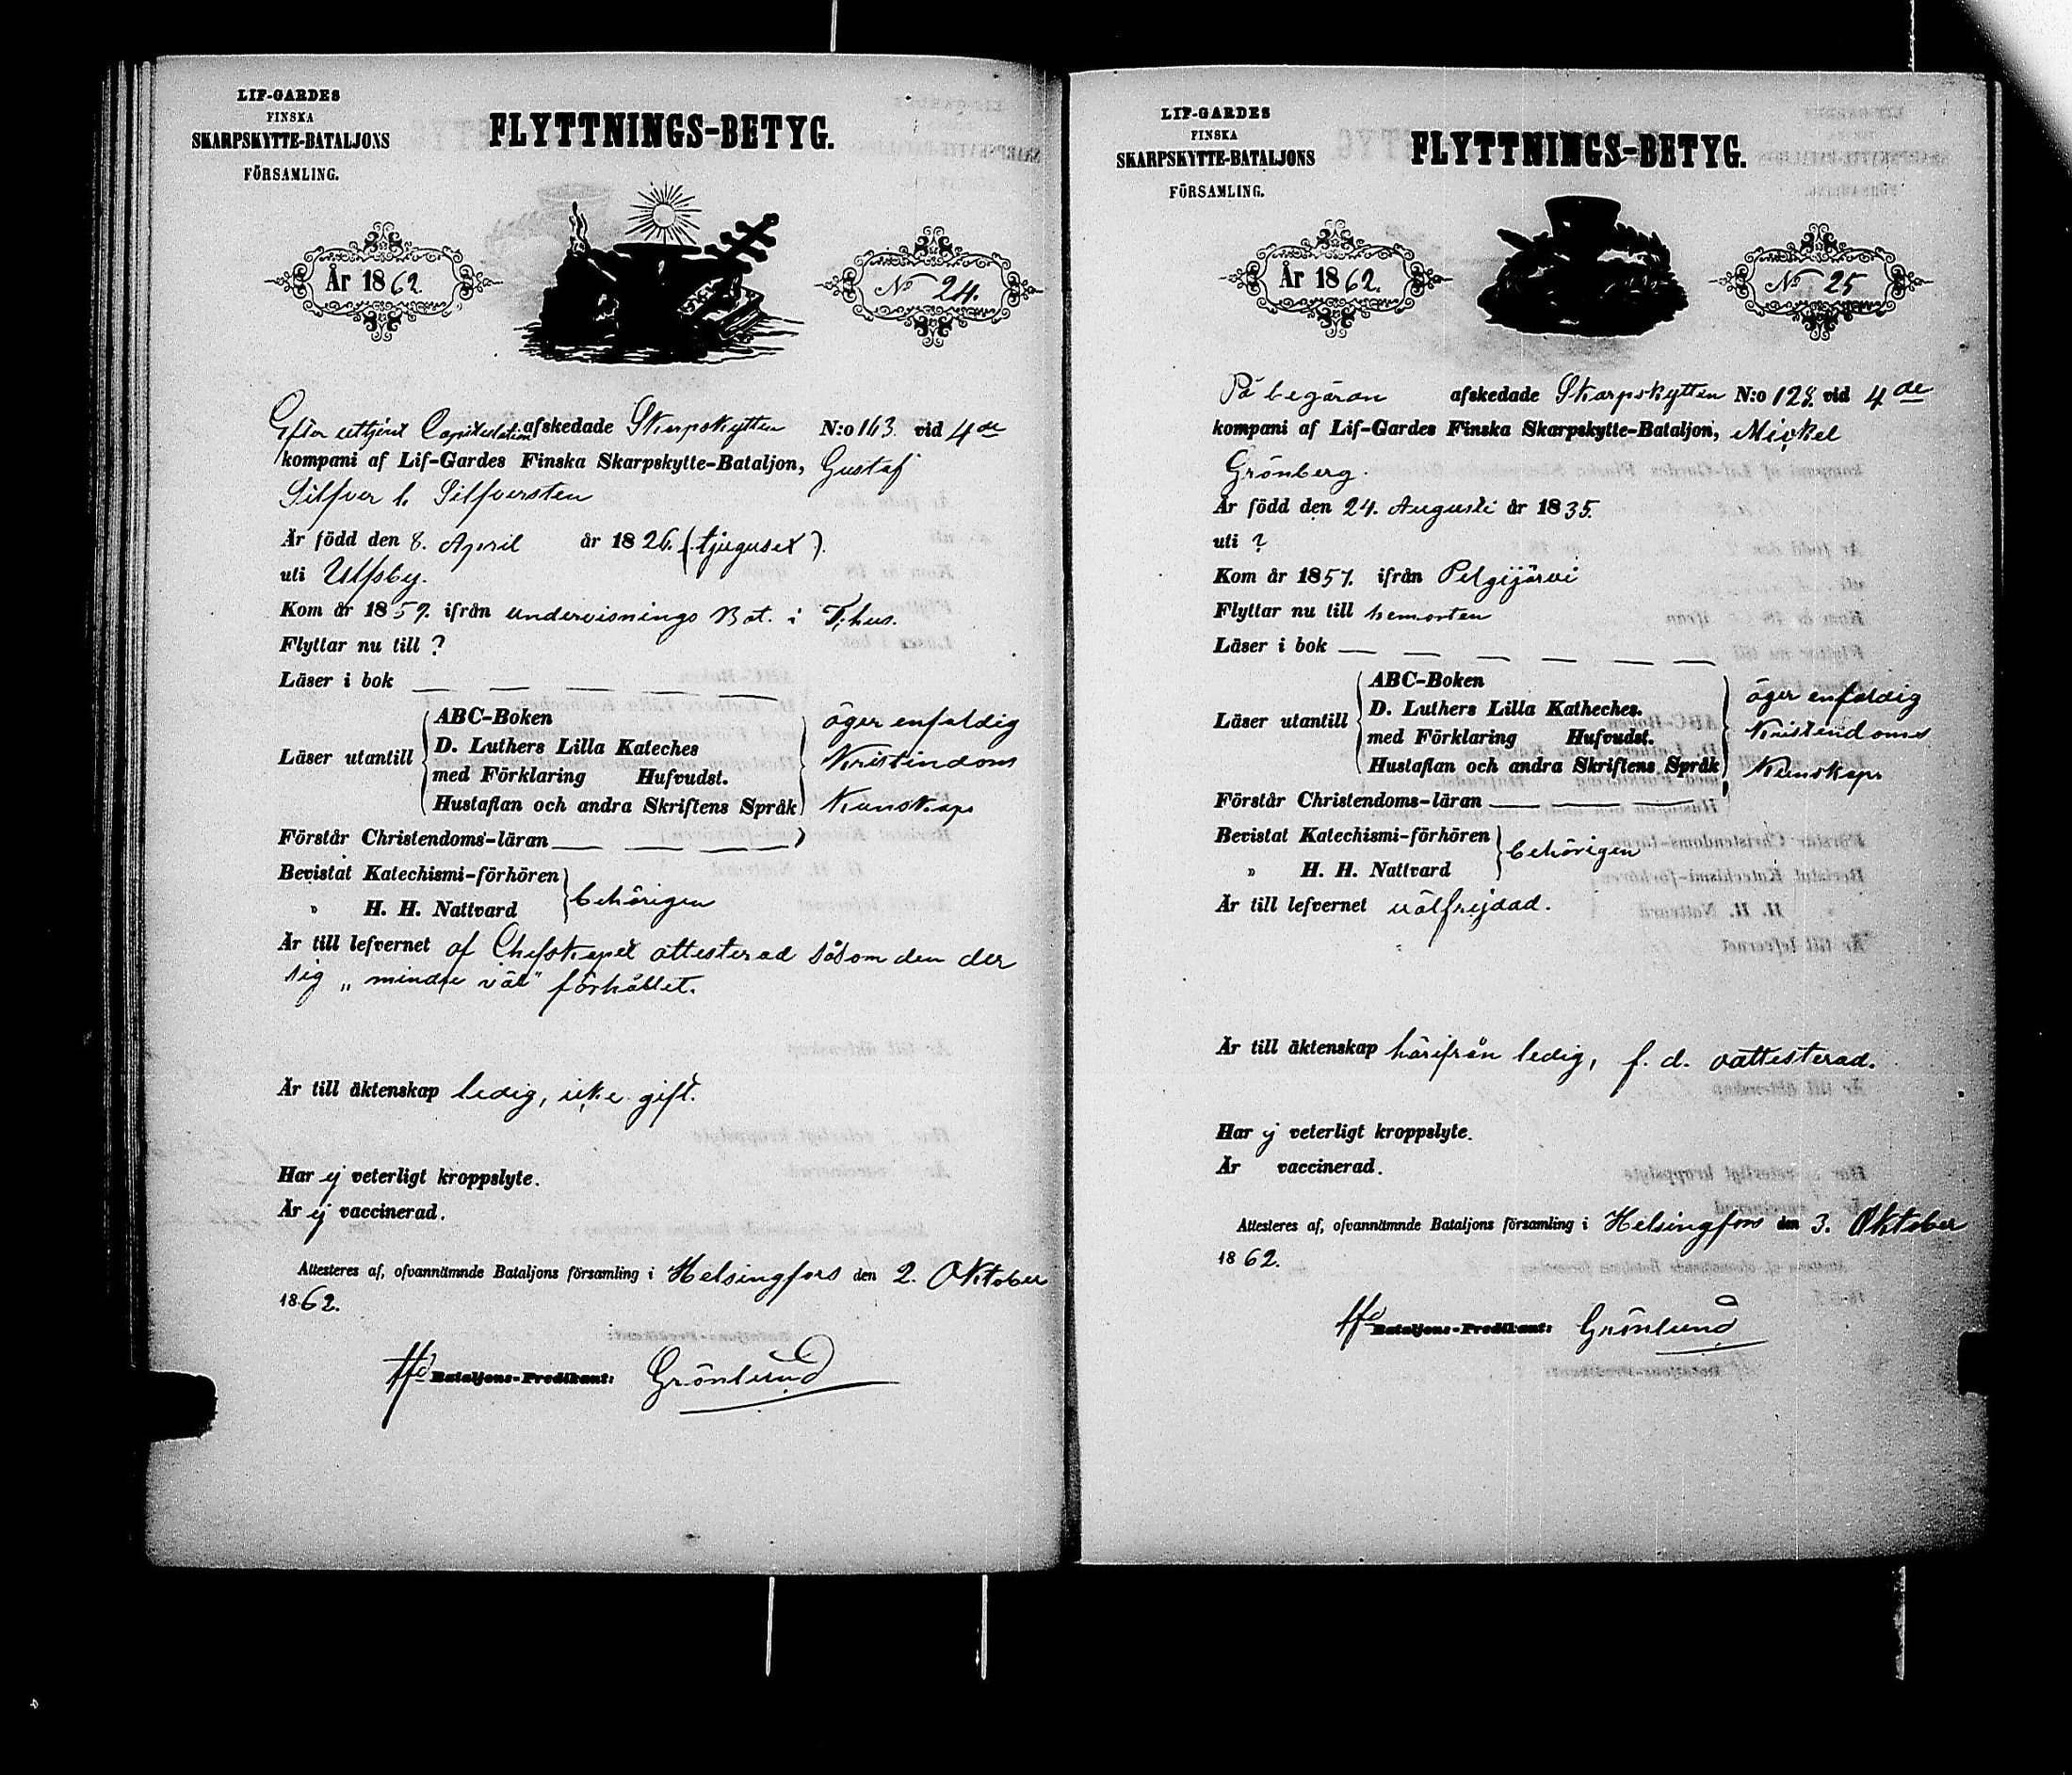 LIF-GARDES
FINSKA
SKARPSKYTTE-BATALJONS
FÖRSAMLING.
FLYTTNINGS-BETYG.
År 1862.
No 24.
Efter uttjent Capitulation afskedade Skarpskytten N:o 163 vid 4de
kompani af Lif-Gardes Finska Skarpskytte-Bataljon, Gustaf
Silfver l. Silfversten
Är född den 8. April år 1826. (tjugusex).
uti Ulfsby.
Kom år 1857. ifrån undervisnings Bat. i T:hus.
Flyttar nu till ?
Läser i bok — — — — —
Läser utantill
ABC-Boken
D. Luthers Lilla Kateches
med Förklaring Hufvudst.
Hustaflan och andra Skriftens Språk
äger enfaldig
Kristindoms
Kunskap
Förstår Christendoms-läran — — — —
Bevistat Katechismi-förhören
" H. H. Nattvard
behörigen
Är till lefvernet af Chefskapet attesterad såsom den der
sig „mindre väl" förhållet.
Är till äktenskap ledig, icke gift.
Har ej veterligt kroppslyte.
Är ej vaccinerad.
Attesteres af, ofvannämnde Bataljons församling i Helsingfors den 2. Oktober
1862.
Bataljons-Predikant: Grönlund
LIF-GARDES
FINSKA
SKARPSKYTTE-BATALJONS
FÖRSAMLING.
FLYTTNINGS-BETYG.
År 1862.
No 25
På begäran afskedade Skarpskytten N:o 128. vid 4de
kompani af Lif-Gardes Finska Skarpskytte-Bataljon, Mickel
Grönberg.
Är född den 24. Augusti år 1835.
uti ?
Kom år 1857. ifrån Pelgijärvi
Flyttar nu till hemorten
Läser i bok — — — — — —
Läser utantill
ABC-Boken
D. Luthers Lilla Katheches.
med Förklaring Hufvudst.
Hustaflan och andra Skriftens Språk
äger enfaldig
Kristendoms
Kunskap
Förstår Christendoms-läran — — — —
Bevistat Katechismi-förhören
" H. H. Nattvard
behörigen
Är till lefvernet välfrejdad.
Är till äktenskap härifrån ledig, f. d. oattesterad.
Har ej veterligt kroppslyte.
Är vaccinerad.
Attesteres af, ofvannämnde Bataljons församling i Helsingfors den 3. Oktober
1862.
Bataljons-Predikant: Grönlund